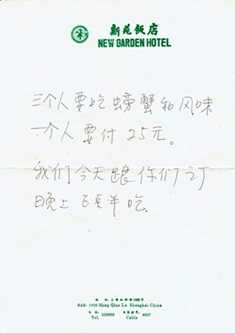 新苑饭店
NEW GARDEN HOTEL
三个人要吃螃蟹和风味
一个人要付25元。
我们今天跟你们订
晚上 点半吃.
Add: 1900 Hong Qiao Lu Shanghai China
Tel.
Cable